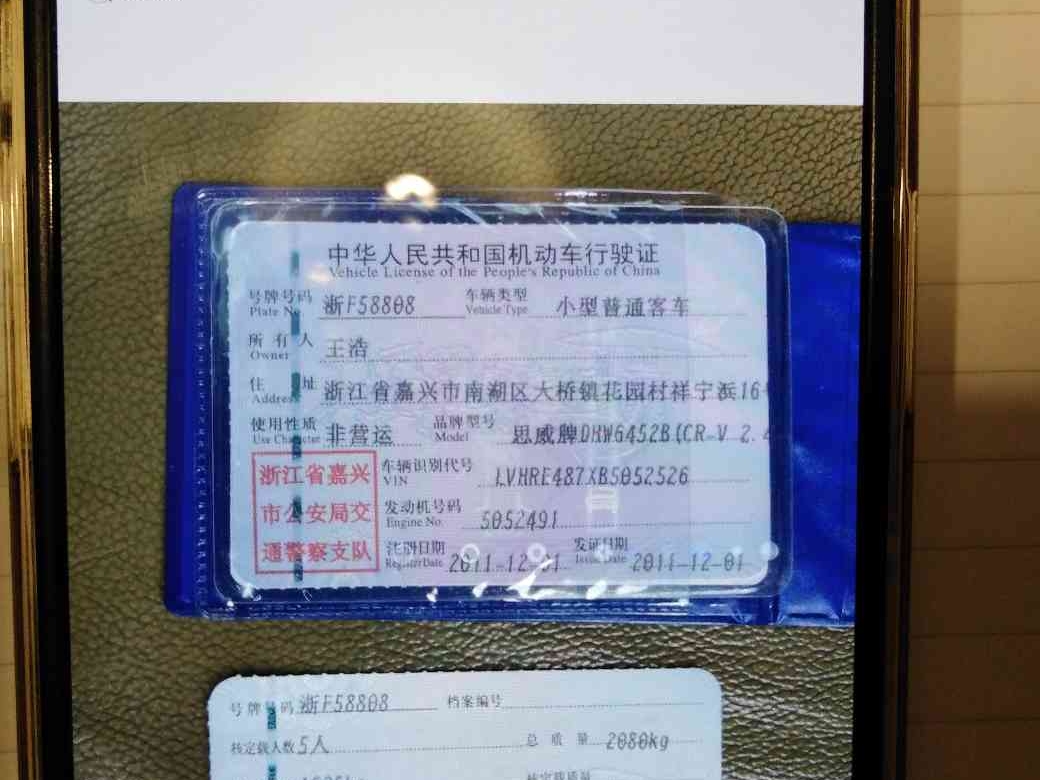 中华人民共和国机动车行驶证
Vehicle License of the People's Republic of China
号牌号码 浙F58808 车辆类型 小型普通客车
Plate No. Vehicle Type
所有人 王浩
Owner
住址 浙江省嘉兴市南湖区大桥镇花园村祥宁浜16
Address
使用性质 非营运 品牌型号 思威牌DHW6452B(CR-V 2.4
Use Character Model
浙江省嘉兴
市公安局交
通警察支队
车辆识别代号 LVHRE487XB5052526
VIN
发动机号码 5052491
Engine No.
注册日期 2011-12-01 发证日期 2011-12-01
Register Date Issue Date
号牌号码 浙F58808 档案编号
核定载人数 5人 总质量 2080kg
核定载质量